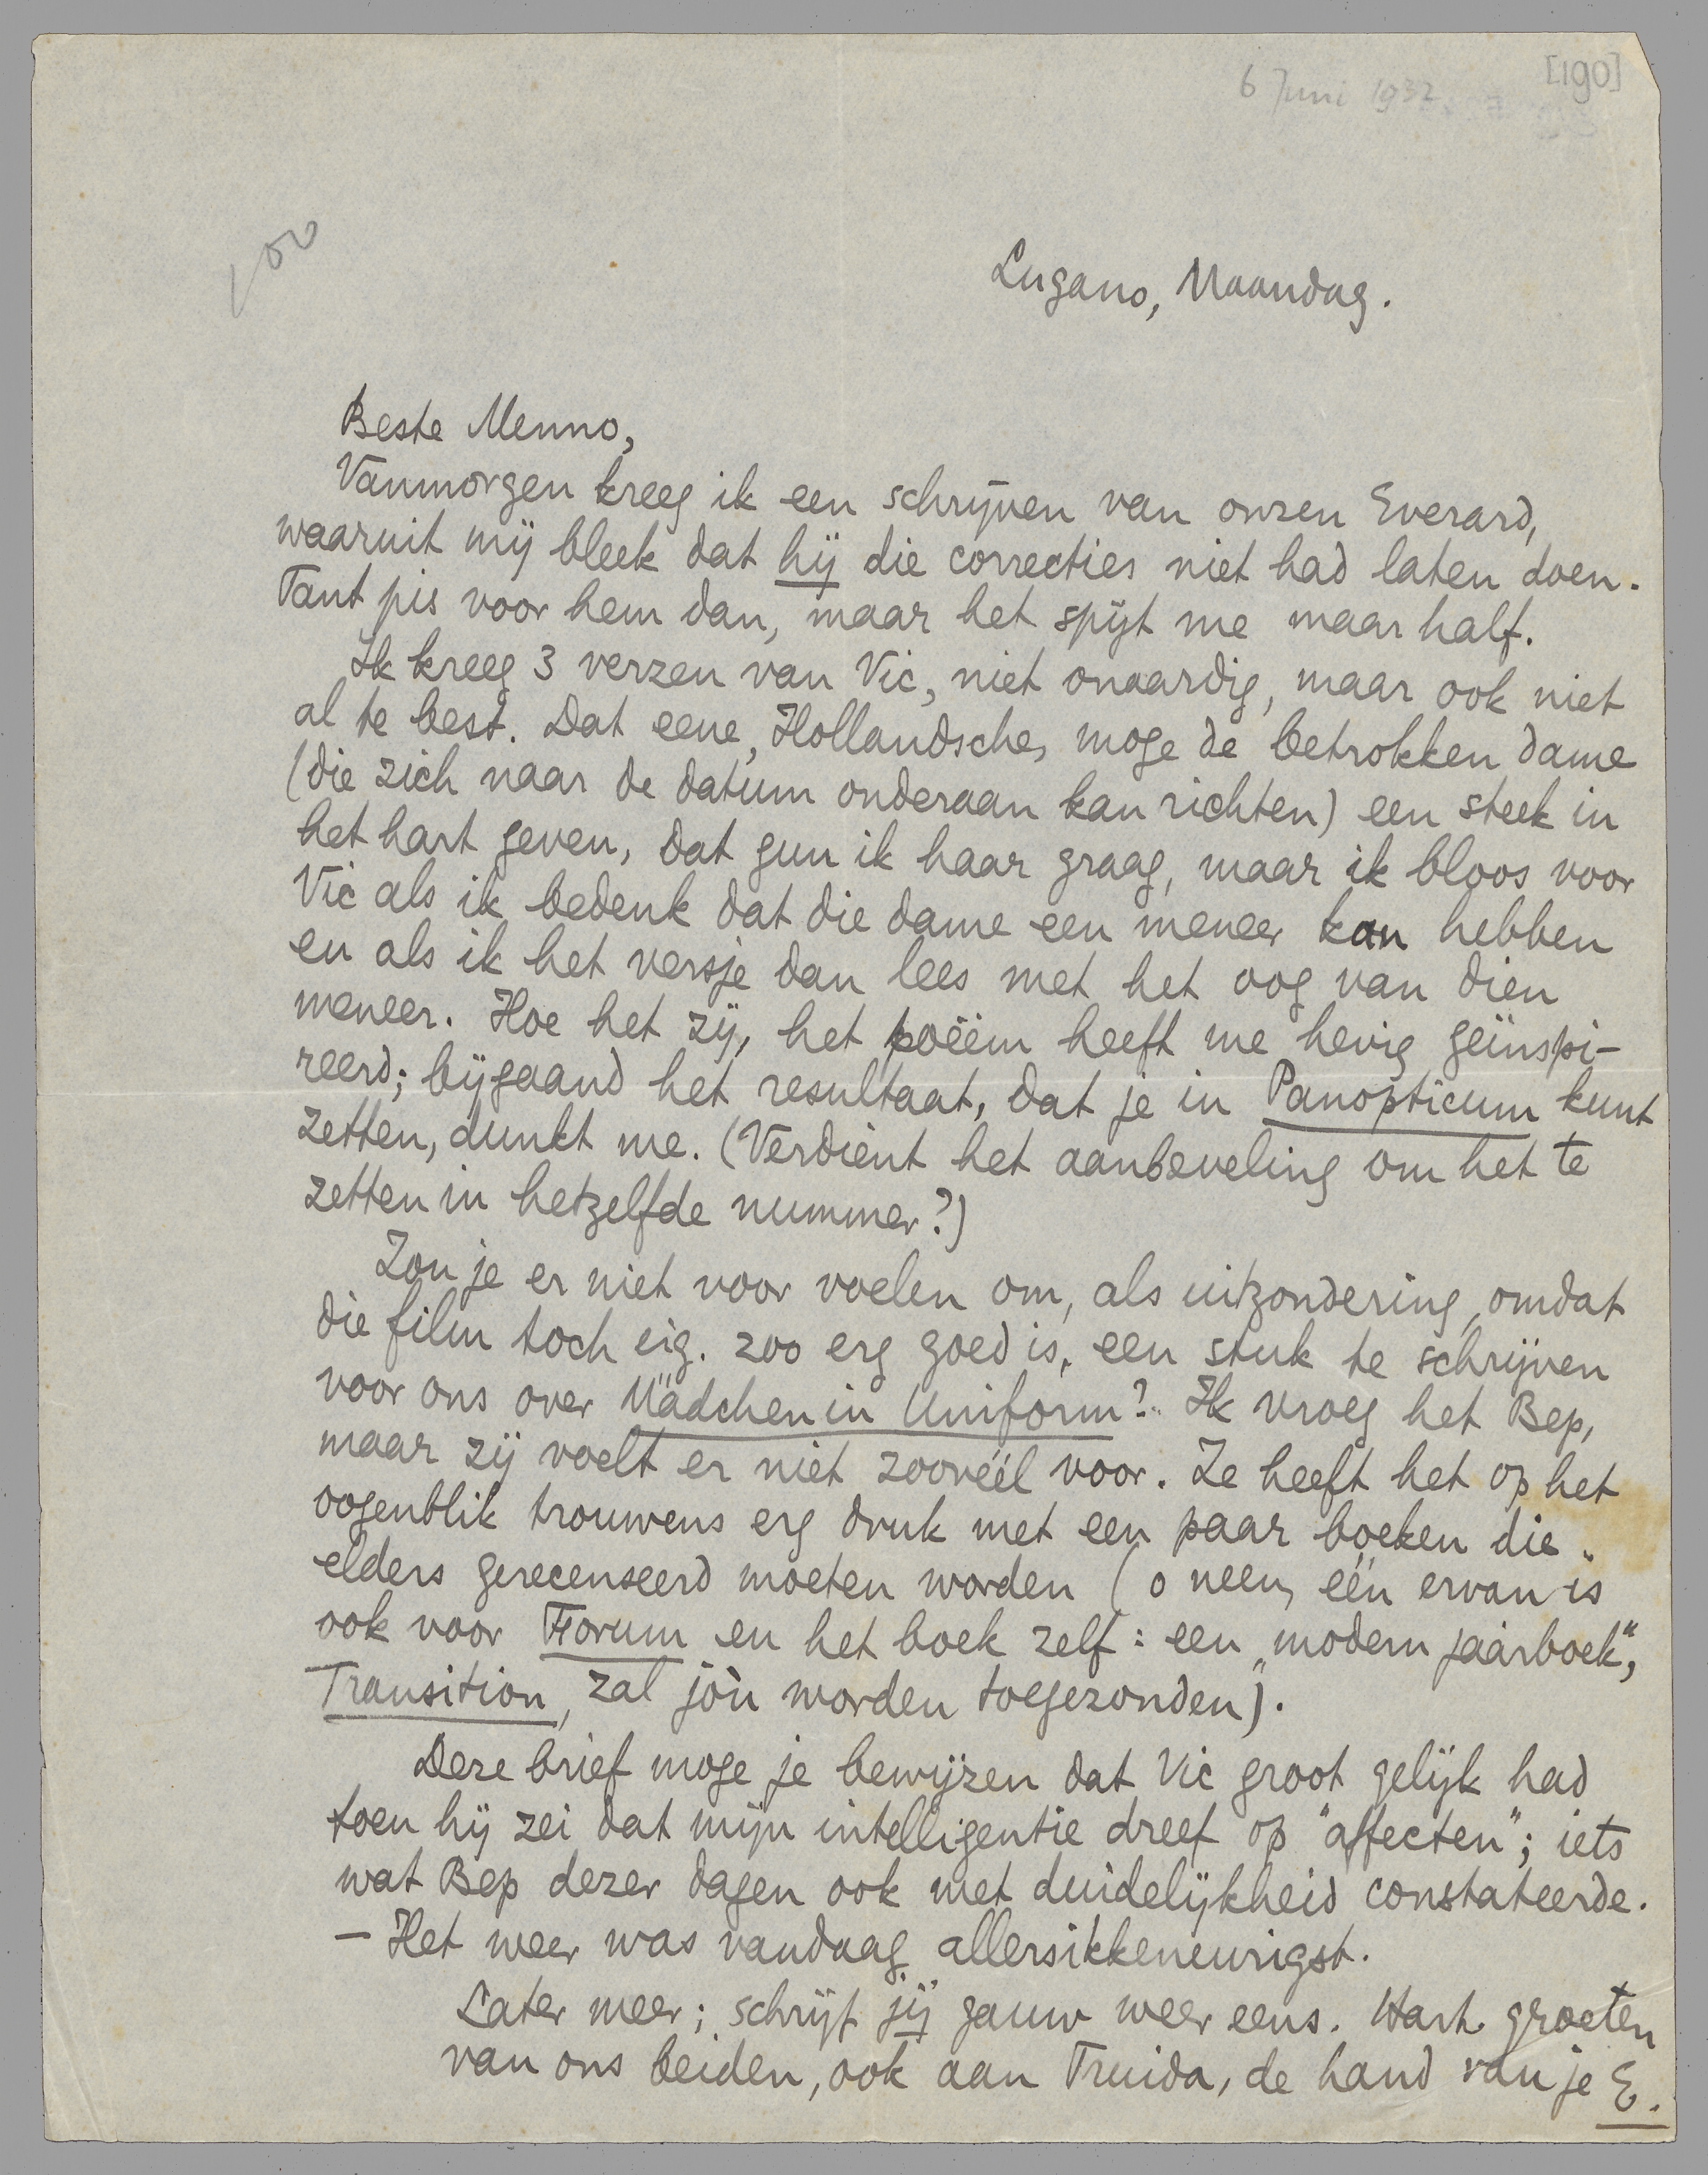 6 Juni 1932
[190]
100
Lugano, Maandag.
Beste Menno,
Vanmorgen kreeg ik een schrijven van onzen Everard,
waaruit mij bleek dat hij die correcties niet had laten doen.
Tant pis voor hem dan, maar het spijt me maar half.
Ik kreeg 3 verzen van Vic, niet onaardig, maar ook niet
al te best. Dat eene, Hollandsche, moge de betrokken dame
(die zich naar de datum onderaan kan richten) een steek in
het hart geven, dat gun ik haar graag, maar ik bloos voor
Vic als ik bedenk dat die dame een meneer kan hebben
en als ik het versje dan lees met het oog van dien
meneer. Hoe het zij, het poëem heeft me hevig geïnspi-
reerd; bijgaand het resultaat, dat je in Panopticum kunt
zetten, dunkt me. (Verdient het aanbeveling om het te
zetten in hetzelfde nummer?)
Zou je er niet voor voelen om, als uitzondering, omdat
die film toch eig. zoo erg goed is, een stuk te schrijven
voor ons over Mädchen in Uniform? Ik vroeg het Bep,
maar zij voelt er niet zoovéél voor. Ze heeft het op het
oogenblik trouwens erg druk met een paar boeken die
elders gerecenseerd moeten worden (o neen, één ervan is
ook voor Forum en het boek zelf: een „modern jaarboek",
Transition, zal jòu worden toegezonden).
Deze brief moge je bewijzen dat Vic groot gelijk had
toen hij zei dat mijn intelligentie dreef op "affecten"; iets
wat Bep dezer dagen ook met duidelijkheid constateerde.
– Het weer was vandaag allersikkeneurigst.
Later meer; schrijf jij gauw weer eens. Hart. groeten
van ons beiden, ook aan Truida, de hand van je E.